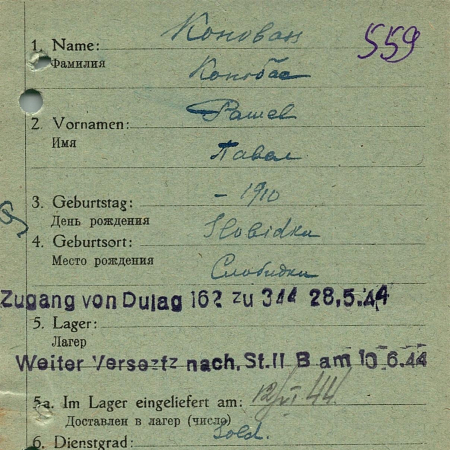 559
1. Name: Коновал
Фамилия
Коновал
2. Vornamen:
Имя Павел
3. Geburtstag: – 1910
День рождения
4. Geburtsort: Slobidka
Место рождения Слобидки
Zugang von Dulag 162 zu 344 28,5.44
5. Lager:
Лагер
Weiter Versetz nach, St.II B am 10.6.44
5a. Im Lager eingeliefert am: 12/VI 44.
Доставлен в лагер (число)
6. Dienstgrad: Sold.